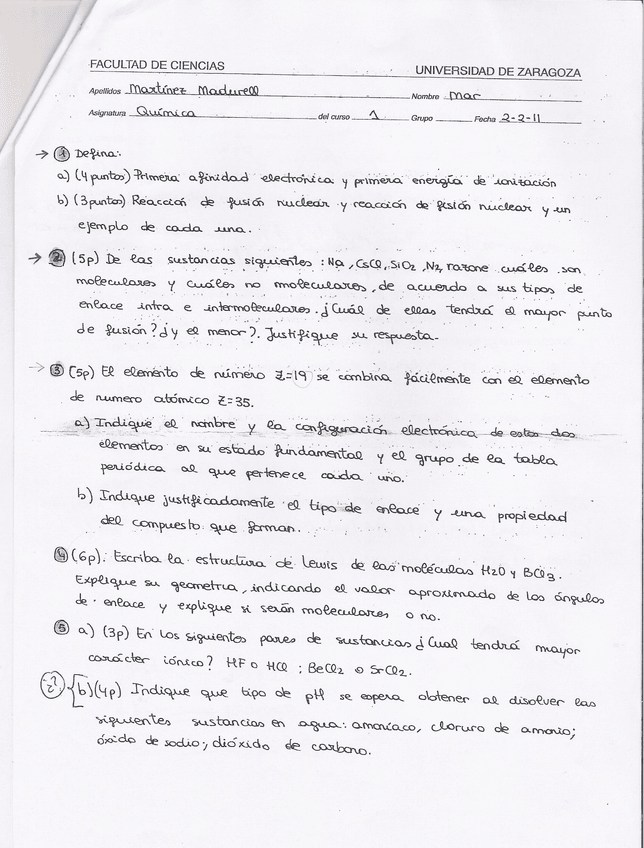 FACULTAD DE CIENCIAS UNIVERSIDAD DE ZARAGOZA
Apellidos Martínez Madurell Nombre Mar
Asignatura Química del curso 1 Grupo Fecha 2-2-11
→ ① Defina:
a) (4 puntos) Primera afinidad electrónica y primera energía de ionización
b) (3 puntos) Reacción de fusión nuclear y reacción de fisión nuclear y un
ejemplo de cada una.
→ ② (5p) De las sustancias siguientes: Na, CsCl, SiO2, N2, razone cuáles son
moleculares y cuáles no moleculares, de acuerdo a sus tipos de
enlace intra e intermoleculares. ¿Cuál de ellas tendrá el mayor punto
de fusión? ¿y el menor?. Justifique su respuesta.
→ ③ (5p) El elemento de número Z=19 se combina fácilmente con el elemento
de numero atómico Z=35.
a) Indique el nombre y la configuración electrónica de estos dos
elementos en su estado fundamental y el grupo de la tabla
periódica al que pertenece cada uno.
b) Indique justificadamente el tipo de enlace y una propiedad
del compuesto que forman.
④ (6p). Escriba la estructura de Lewis de las moléculas H2O y BCl3.
Explique su geometría, indicando el valor aproximado de los ángulos
de enlace y explique si serán moleculares o no.
⑤ a) (3p) En los siguientes pares de sustancias ¿Cual tendrá mayor
carácter iónico? HF o HCl ; BeCl2 o SrCl2.
¿? [b) (4p) Indique que tipo de pH se espera obtener al disolver las
siguientes sustancias en agua: amoníaco, cloruro de amonio;
óxido de sodio; dióxido de carbono.